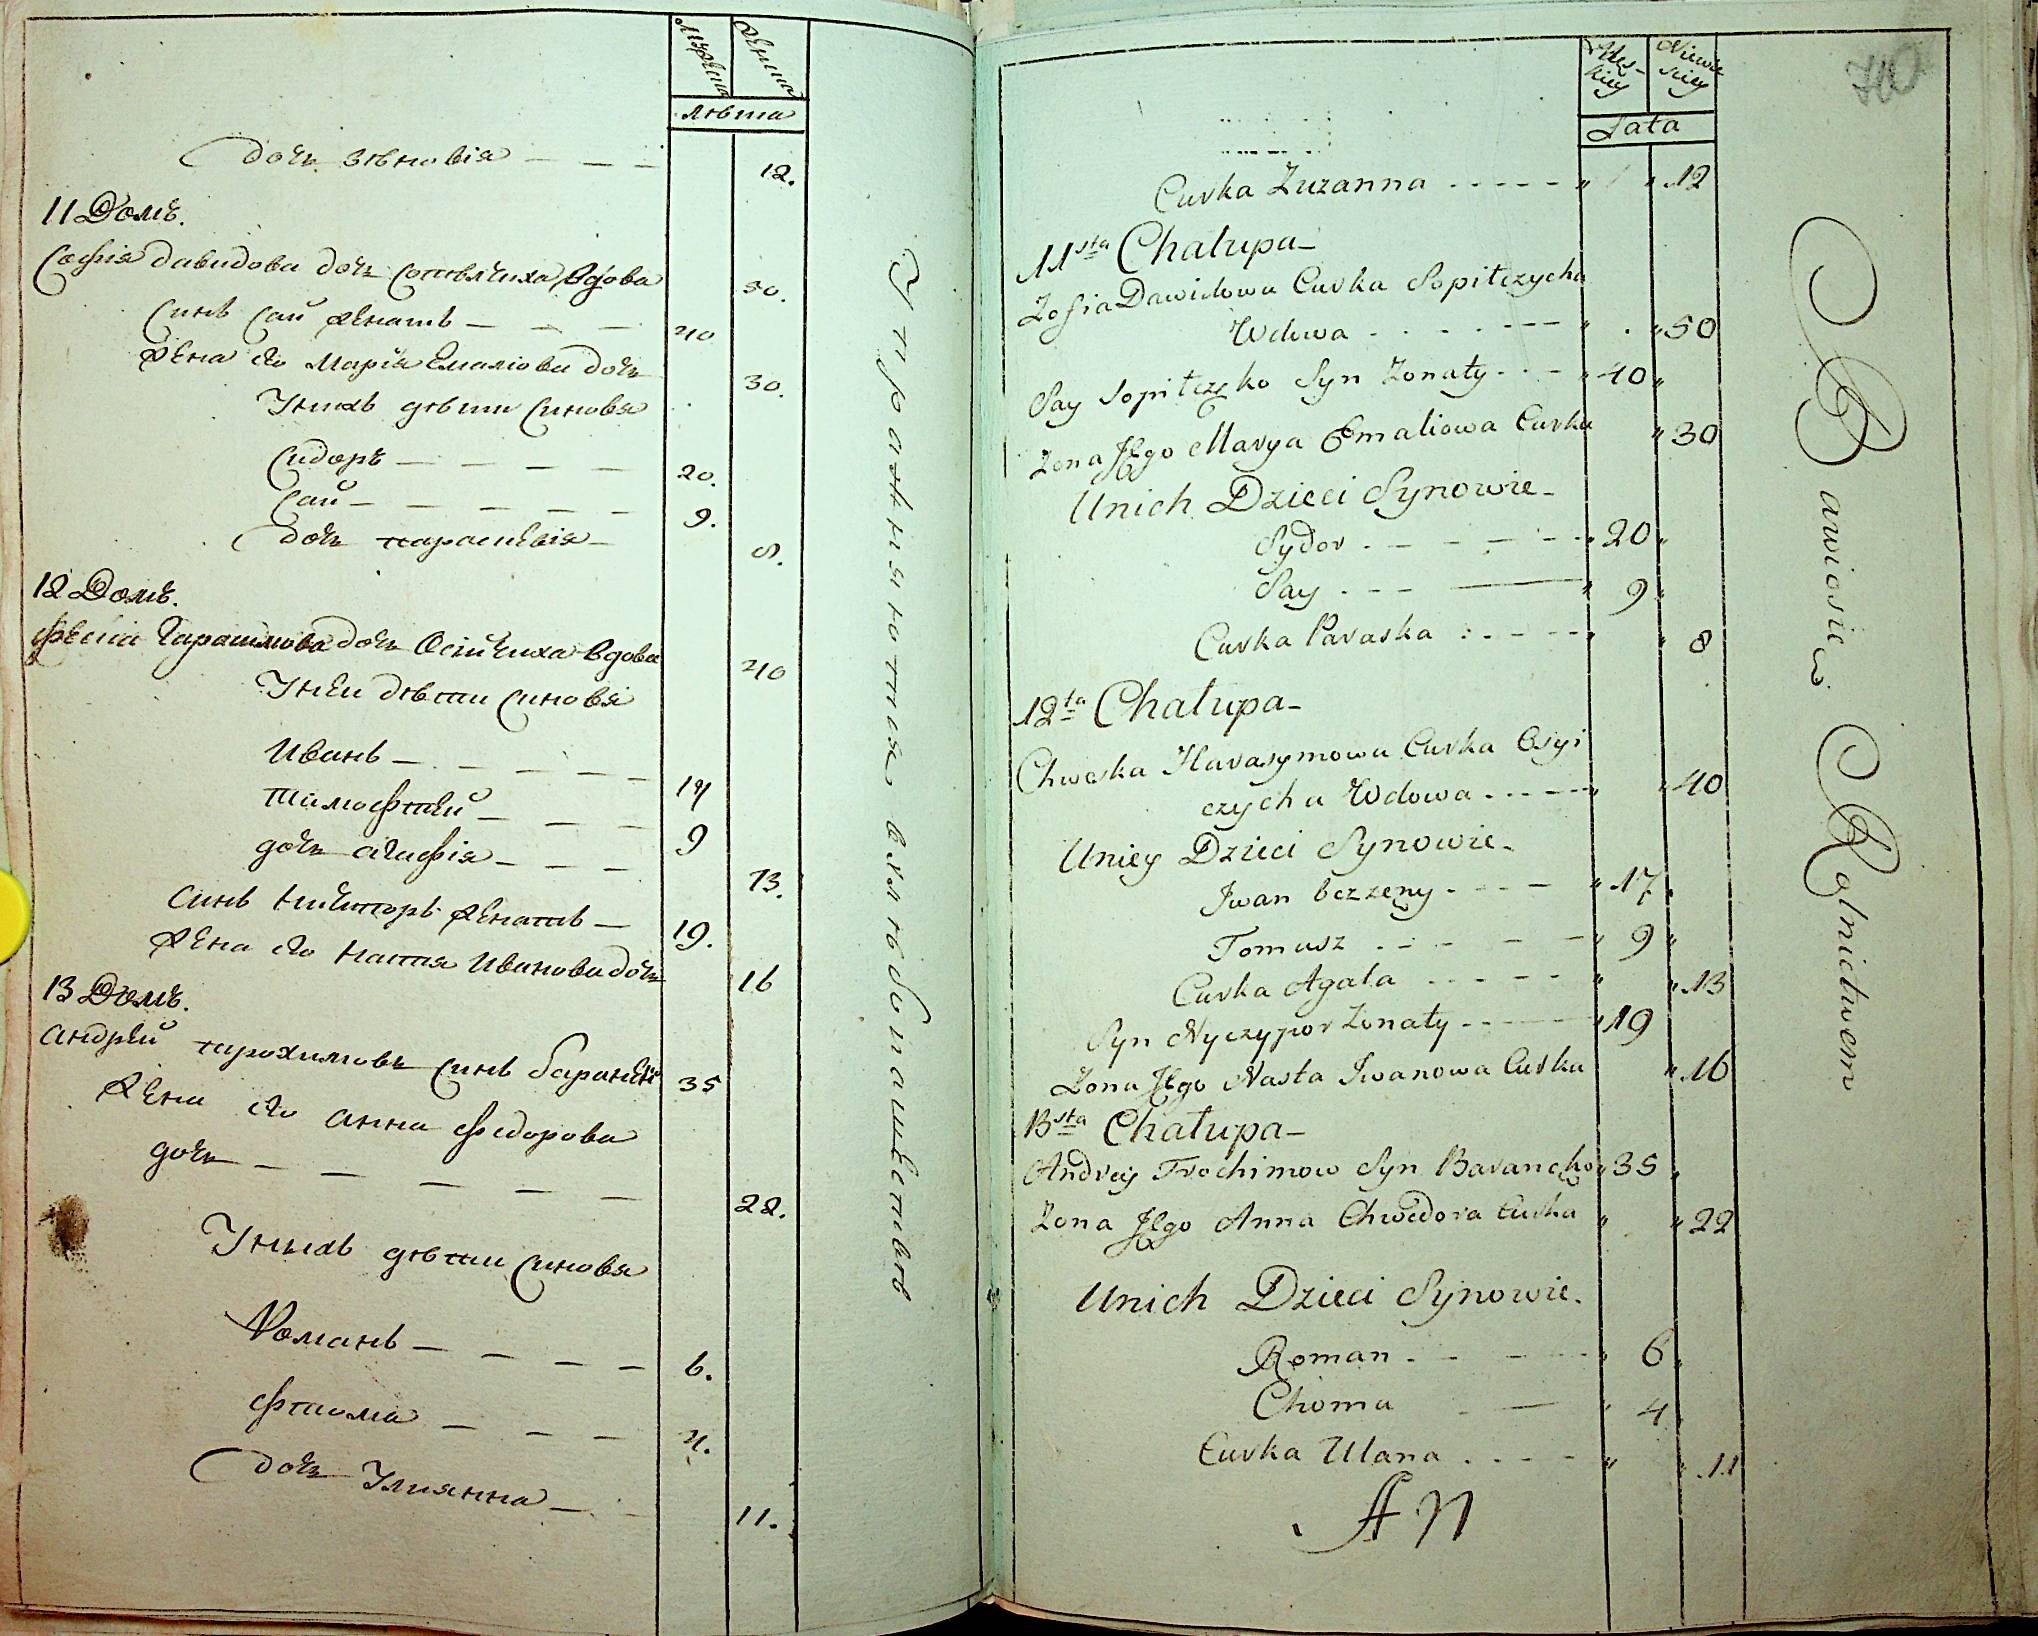 лѣта
дочь Зѣновія 12.
11 Домъ.
Софія Давидова дочь Вдова 50.
Синъ Сай женатъ 40
Жена его Марія Емаліова дочь 30.
У нихъ дѣти Синовя
Сидоръ 20.
Сай 9.
дочь Параскевія 8.
12 Домъ.
Гарасимова дочь Осійчиха Вдова 40
У неи дѣти Синовя
Иванъ 17
Тимофтей 9
дочь Агафія 13.
Синъ Ничипоръ женатъ 19.
Жена его Настя Иванова дочь 16
13 Домъ.
Андрей Трохимовъ Синъ 35
Жена его Анна Федорова
дочь 22.
У нихъ дѣти Синовя
Романъ 6.
Фтома 4.
дочь Улиянна 11.
Упражняются в хлѣбопашествѣ
Męskiey Niewieściey
Lata
Curka Zuzanna 12
11sta Chałupa
Zofia Dawidowa Curka Sopitczycha
Wdowa 50
Say Sopitczęko Syn Zonaty 40
Zona Jego Marya Emaliowa Curka 30
Unich Dzieci Synowie
Sydor 20
Say 9
Curka Paraska 8
12ta Chałupa
Chweska Harasymowa Curka Osyi
czycha Wdowa 40
Uniey Dzieci Synowie
Jwan bez zeny 17
Tomasz 9
Curka Agata 13
Syn Nyczypor Zonaty 19
Zona Jego Nasta Jwanowa Curka 16
13sta Chałupa
Andrey Trochimow Syn 35
Zona Jego Anna Chwedora Curka 22
Unich Dzieci Synowie.
Roman 6
Choma 4
Curka Ulana 11
Bawiosię Rolnictwem